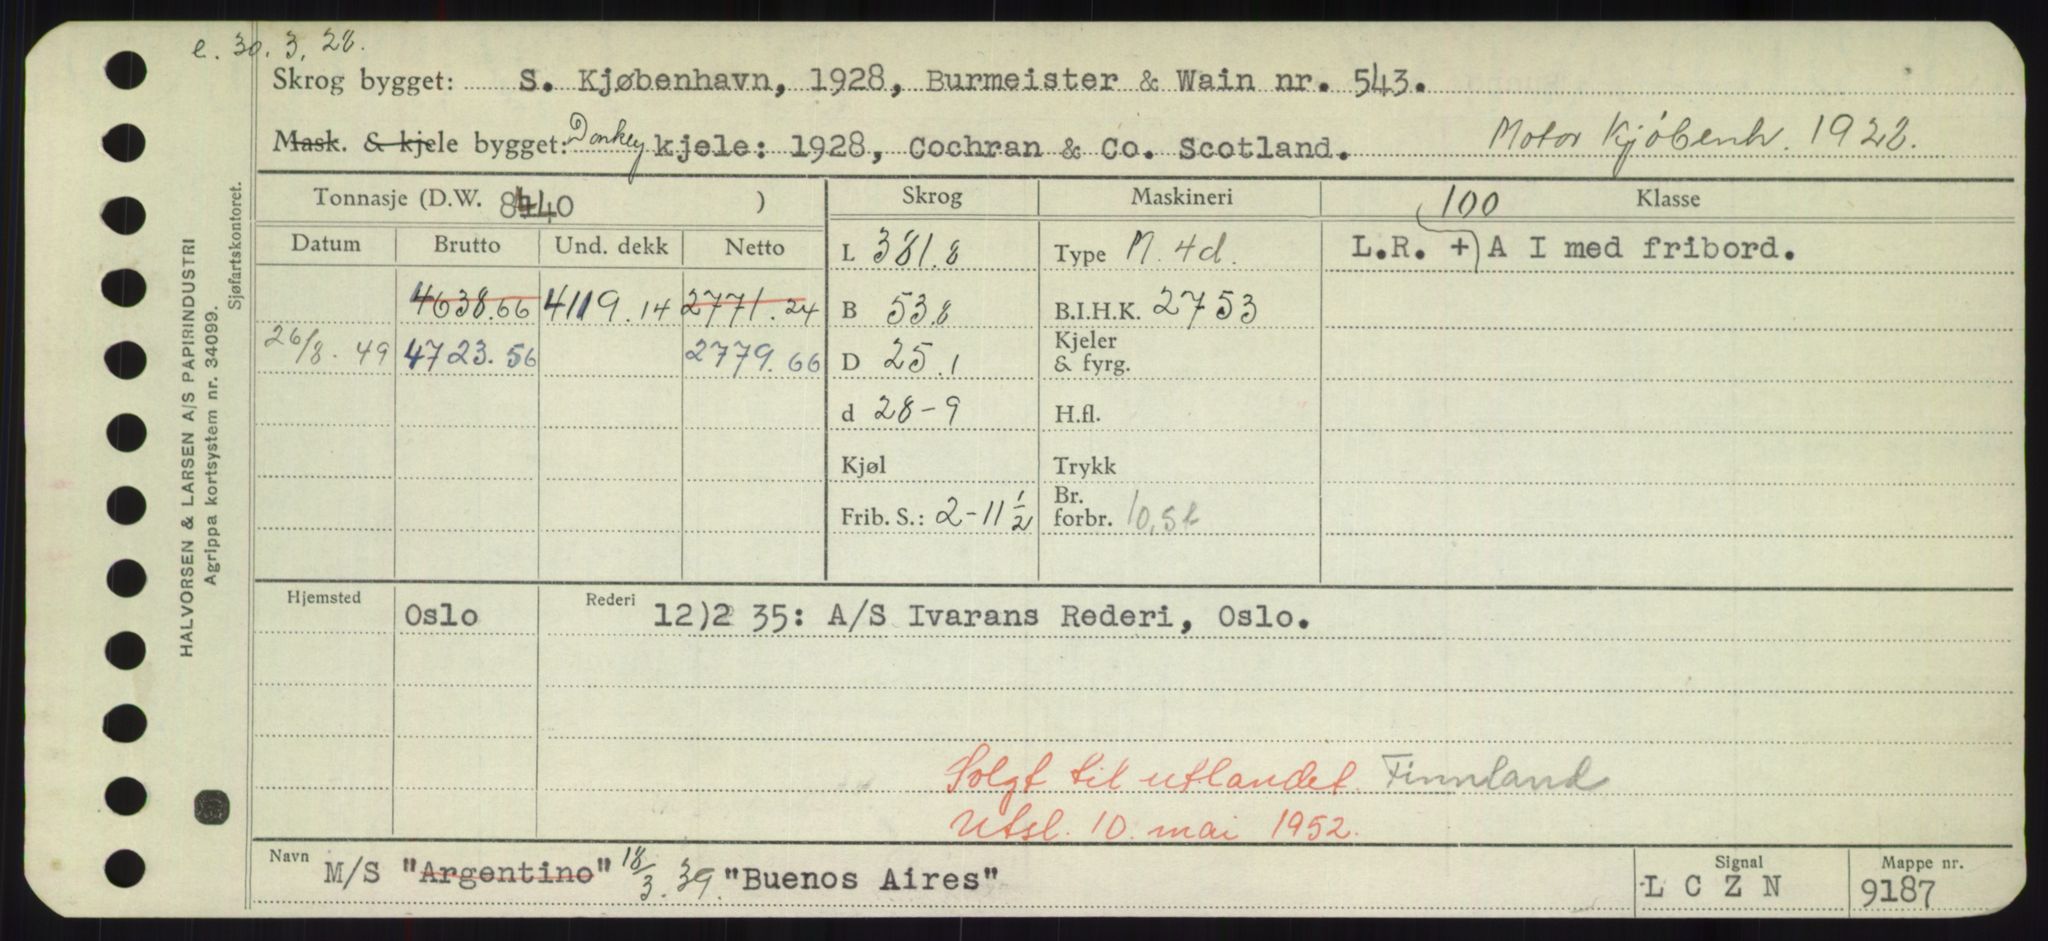 e. 30. 3. 28.
Skrog bygget: S. Kjøbenhavn, 1928, Burmeister & Wain nr. 543.
Mask. & kjele bygget: Donkey kjele: 1928, Cochran & Co. Scotland. Motor Kjöbenh. 1928.
Tonnasje (D.W. 8440 ) Skrog Maskineri 100 Klasse
Datum Brutto Und. dekk Netto L 381.8 Type M. 4d. L.R. + A I med fribord.
4638.66 4119.14 2771.24 B 53.8 B.I.H.K. 2753
26/8. 49 4723.56 2779.66 D 25.1 Kjeler & fyrg.
d 28-9 H.fl.
Kjøl Trykk
Frib. S.: 2-11 1/2 Br. forbr. 10,5t
Hjemsted Oslo Rederi 12)2 35: A/S Ivarans Rederi, Oslo.
Solgt til utlandet. Finnland
Utsl. 10. mai 1952.
Navn M/S "Argentino" 18/3. 39. "Buenos Aires" Signal L C Z N Mappe nr. 9187
HALVORSEN & LARSEN A/S PAPIRINDUSTRI
Agrippa kortsystem nr. 34099.
Sjøfartskontoret.